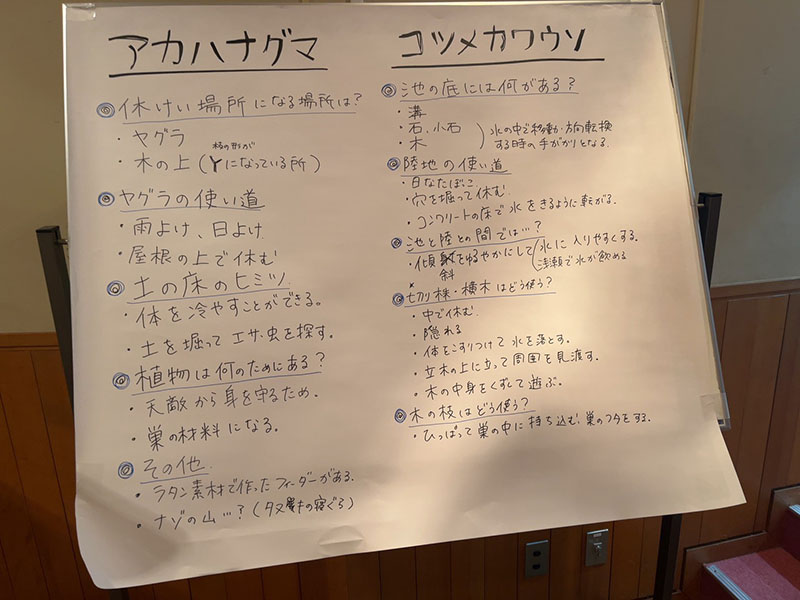 アカハナグマ
◎休けい場所になる場所は?
・ヤグラ
枝の形が
・木の上(Yになっている所)
◎ヤグラの使い道
・雨よけ、日よけ
・屋根の上で休む
◎土の床のヒミツ
・体を冷やすことができる。
・土を掘ってエサ・虫を探す。
◎植物は何のためにある?
・天敵から身を守るため.
・巣の材料になる。
◎その他.
・ラタン素材で作ったフィーダーがある.
・ナゾの山…?(タヌキの寝ぐら)
コツメカワウソ
◎池の底には何がある?
・溝
・石、小石
・木
)水の中で移動・方向転換
する時の手がかりとなる.
◎陸地の使い道
・日なたぼっこ
・穴を掘って休む
・コンクリートの床で水をきるように転がる.
◎池と陸との間では…?
・傾斜をゆるやかにして(水に入りやすくする。
浅瀬で水が飲める
◎切り株・横木はどう使う?
・中で休む
・隠れる
・体をこすりつけて水を落とす。
・立木の上に立って周囲を見渡す。
・木の中身をくずして遊ぶ。
◎木の枝はどう使う?
・ひっぱって巣の中に持ち込む、巣のフタをする.